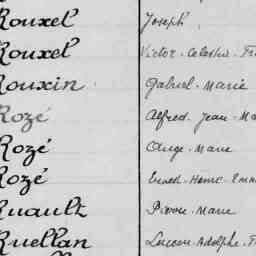 Rouxel Joseph
Rouxel Victor-Celestin-Fr
Rouxin Gabriel-Marie
Rozé Alfred-Jean-Ma
Rozé Ange-Marie
Rozé Henri-Emm
Ruault Pierre-Marie
Ruellan Lucien-Adolphe-F